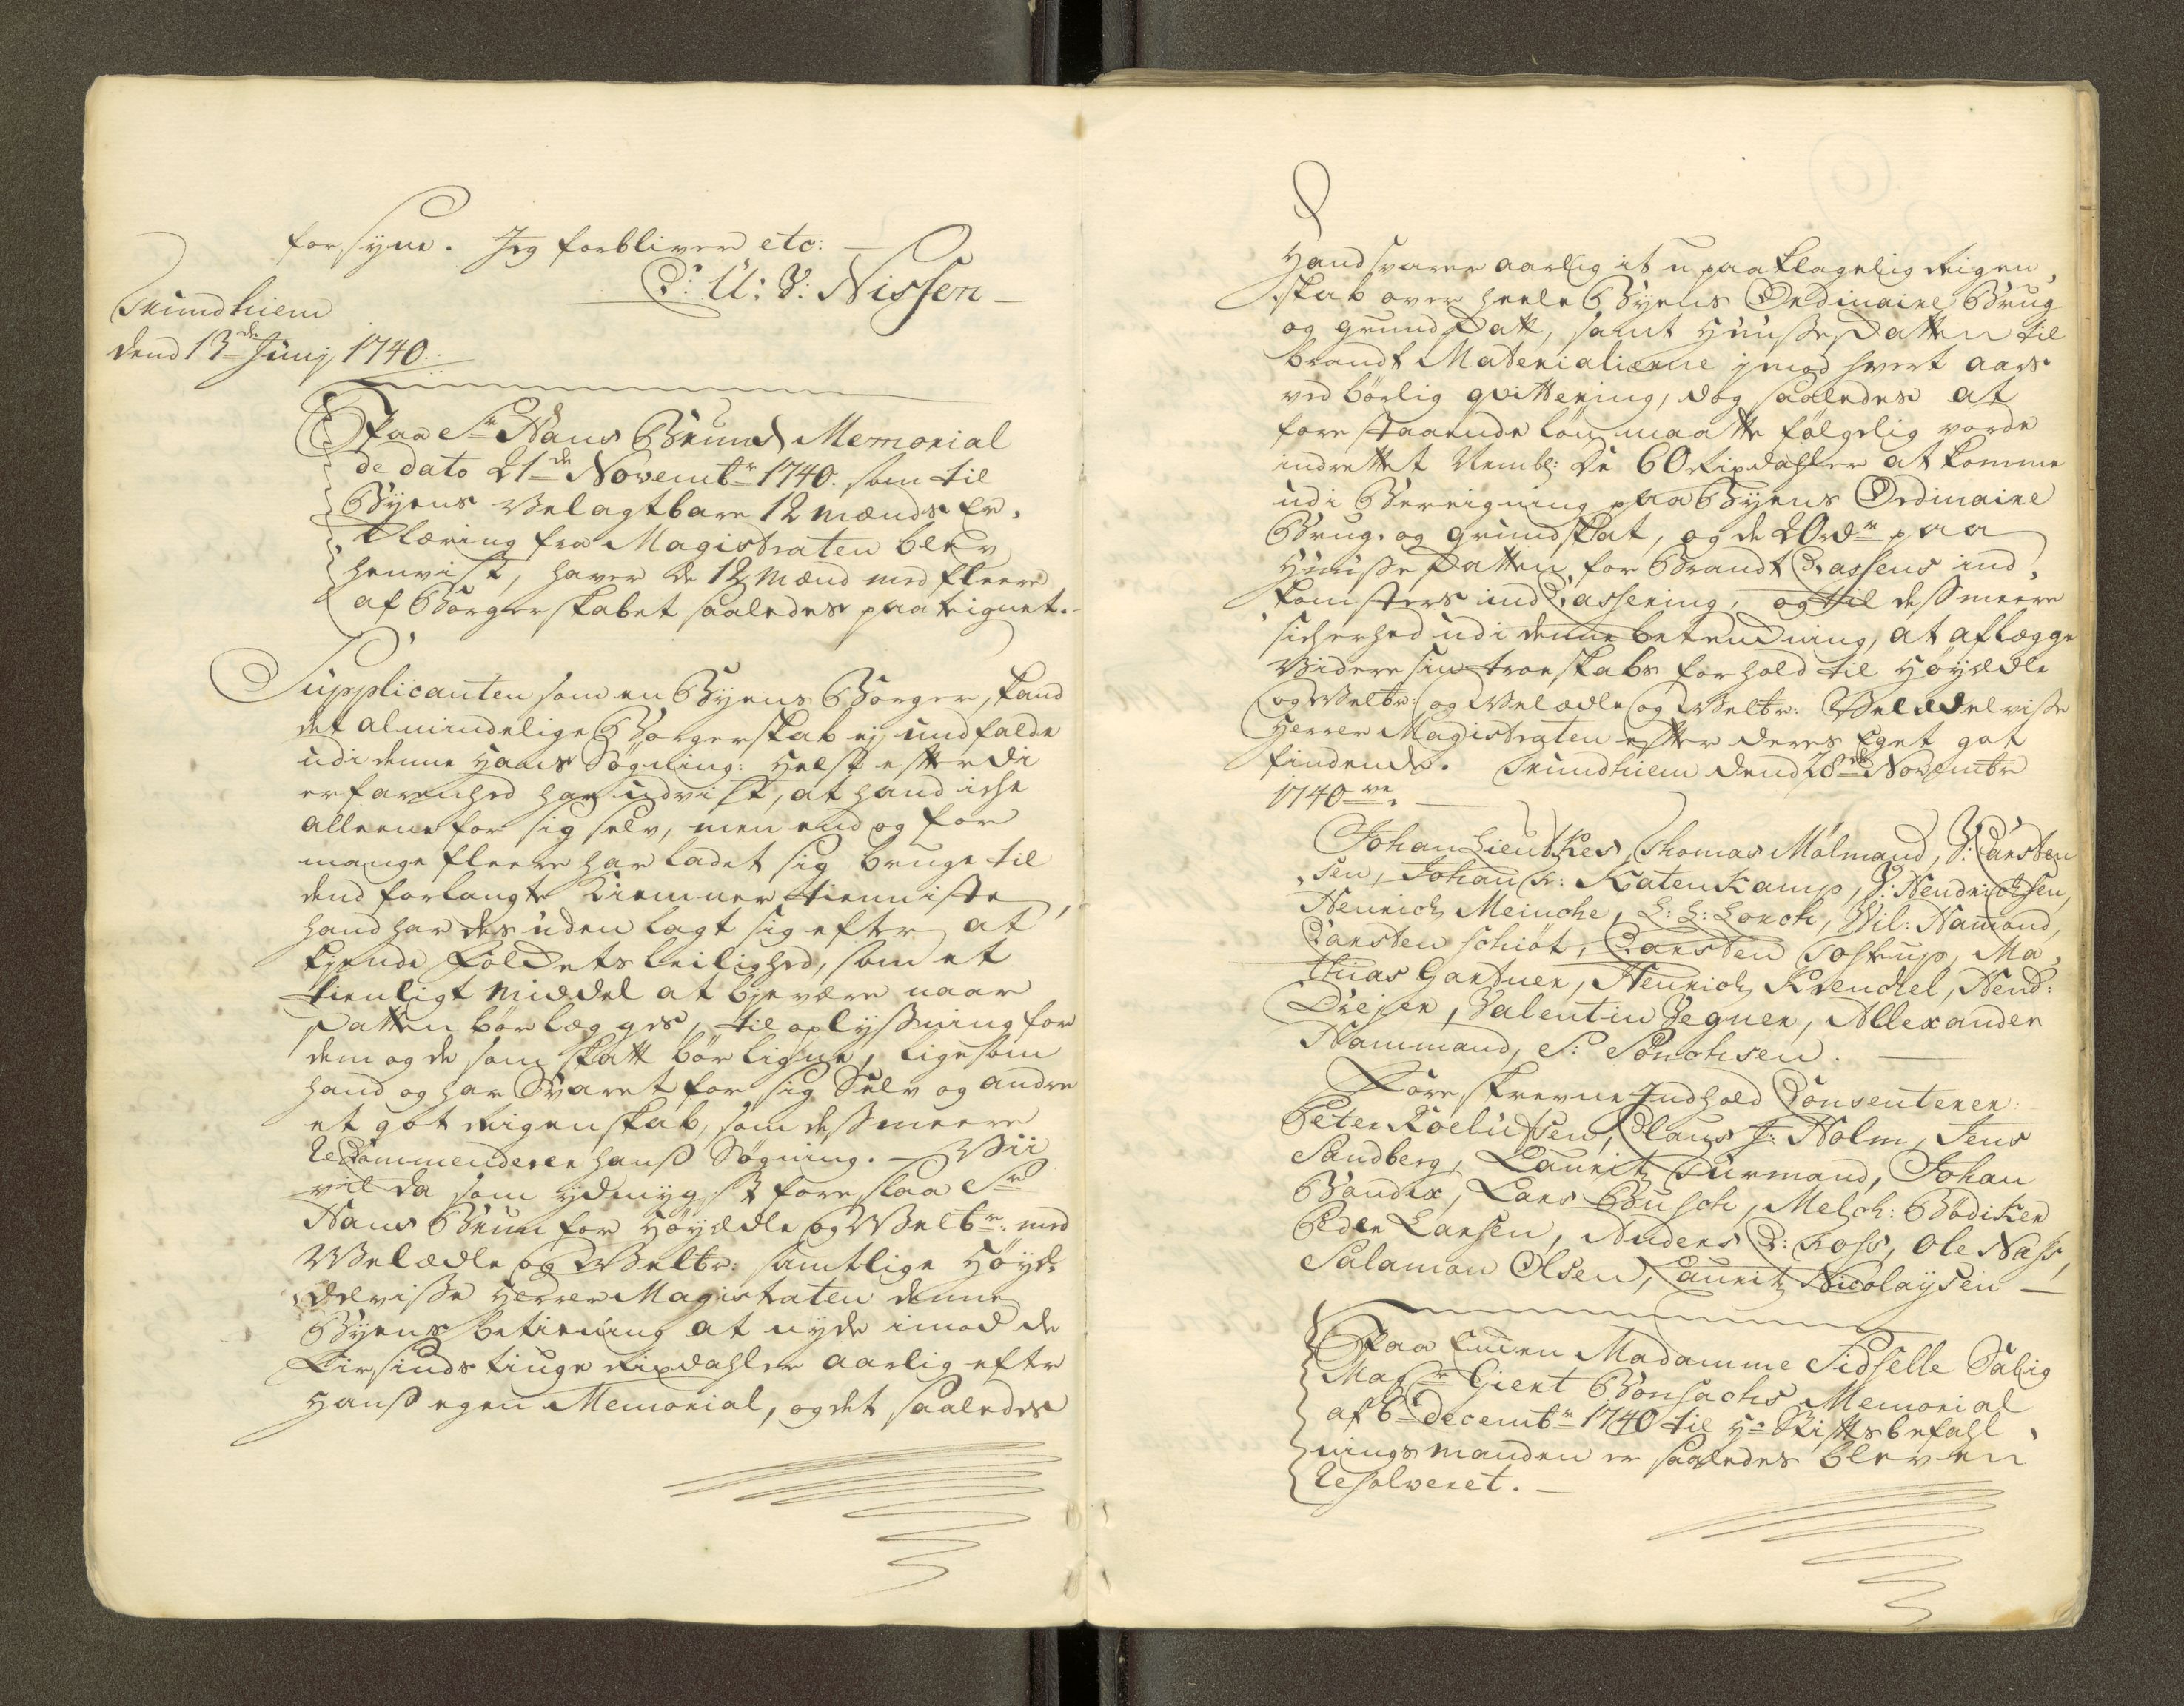 forsyne. Jeg forbliver etc: —
P: U: V: Nissen —
Trundhiem
dend 13de Junj 1740.
Paa Sr Hans Bruns Memorial
de dato 21de Novembr 1740. som til
Byens Velagtbare 12 mænds Er,
klæring fra Magistraten blev
henvist, haver de 12 Mænd med fleere
af Borgerskabet saaledes paateignet.
Supplicanten som en Byens Borger, kand
det almindelige Borgerskab ej undfalde
udi denne hans Søgning: helst efterdi
erfarenhed har udvist, at hand iche
alleene for sig selv, men end og for
mange fleere har ladet sig bruge til
dend forlangte Kiemner tienniste,
hand har des uden lagt sig efter at
kiende Foldets leilighed, som et
tienligt middel at bjevære naar
skatten bør læg ges, til oplysning for
dem og de som skatt bør ligne, ligesom
hand og har Svaret for sig Selv og andre
et got Reigenskab, som dessmeere
Recommenderer hans Søgning. — Vii
vil da som ydmygst foreslaa Sr
Hans Brun for Høyædle og Velbr: med
Velædle og Velbr: samtlige Høyæ,
delvisse Herrer Magistraten denne
Byens betiening at nyde imod de
Firsinds tiuge Rixdahler aarlig efter
hans egen Memorial, og det saaledes
Hand svarer aarlig it upaaklagelig Reigen,
skab over heele Byens Ordinaire Brug
og grundskatt, samt Huusseskatten til
brandt Materialierne imod hvert aars
ved børlig qvittering, dog saaledes at
forestaaende løn maatte følgelig vorde
indrettet Nembl: de 60 Rixdahler at komme
udi Bereigning paa Byens Ordinaire
Brug- og grundskat, og de 20 rdr paa
Huusseskatten for Brandt Cassens ind,
komsters ind Cassering, og til dess meere
sicherhed udi denne betiening, at aflægge
Videre sin troeskabs forhold til Høyædle
og Velbr: og Velædle og Velbr: Velædelvisse
Herrer Magistraten efter deres Eget got
findende. Trundhiem dend 28de Novembr
1740ve.
Johan Lieutkes, Thomas Mølmand, J: Carsten
sen, Johan C: Katenkamp, J: Hendrichsen,
Henrich Meinche, L: L: Lorch, Wil: Hamond,
Carsten schiøt, Carsten Tostrup, Ma,
thias Gartner, Henrich Krenckel, Hend:
Drejer, Valentin Vegner, Allexander
Hammand, S: Sønchsen. —
Forreskrevne Indhold Consenterer:
Peter Roelufsen, Claus J: Holm, Jens
Sandberg, Lauritz Furmand, Johan
Bandix, Lars Busch, Melch: Bødiker
Peder Larsen, Anders C: Foss, Ole Næss,
Salamon Olsen, Lauritz Nicolaysen —
Paa Enken Madamme Sidselle Salig
Magr Giert Bonsachs Memorial
af 6te decembr 1740 til Hr Stiftsbefahl,
ningsmanden er saaledes bleven
Resolveret. —